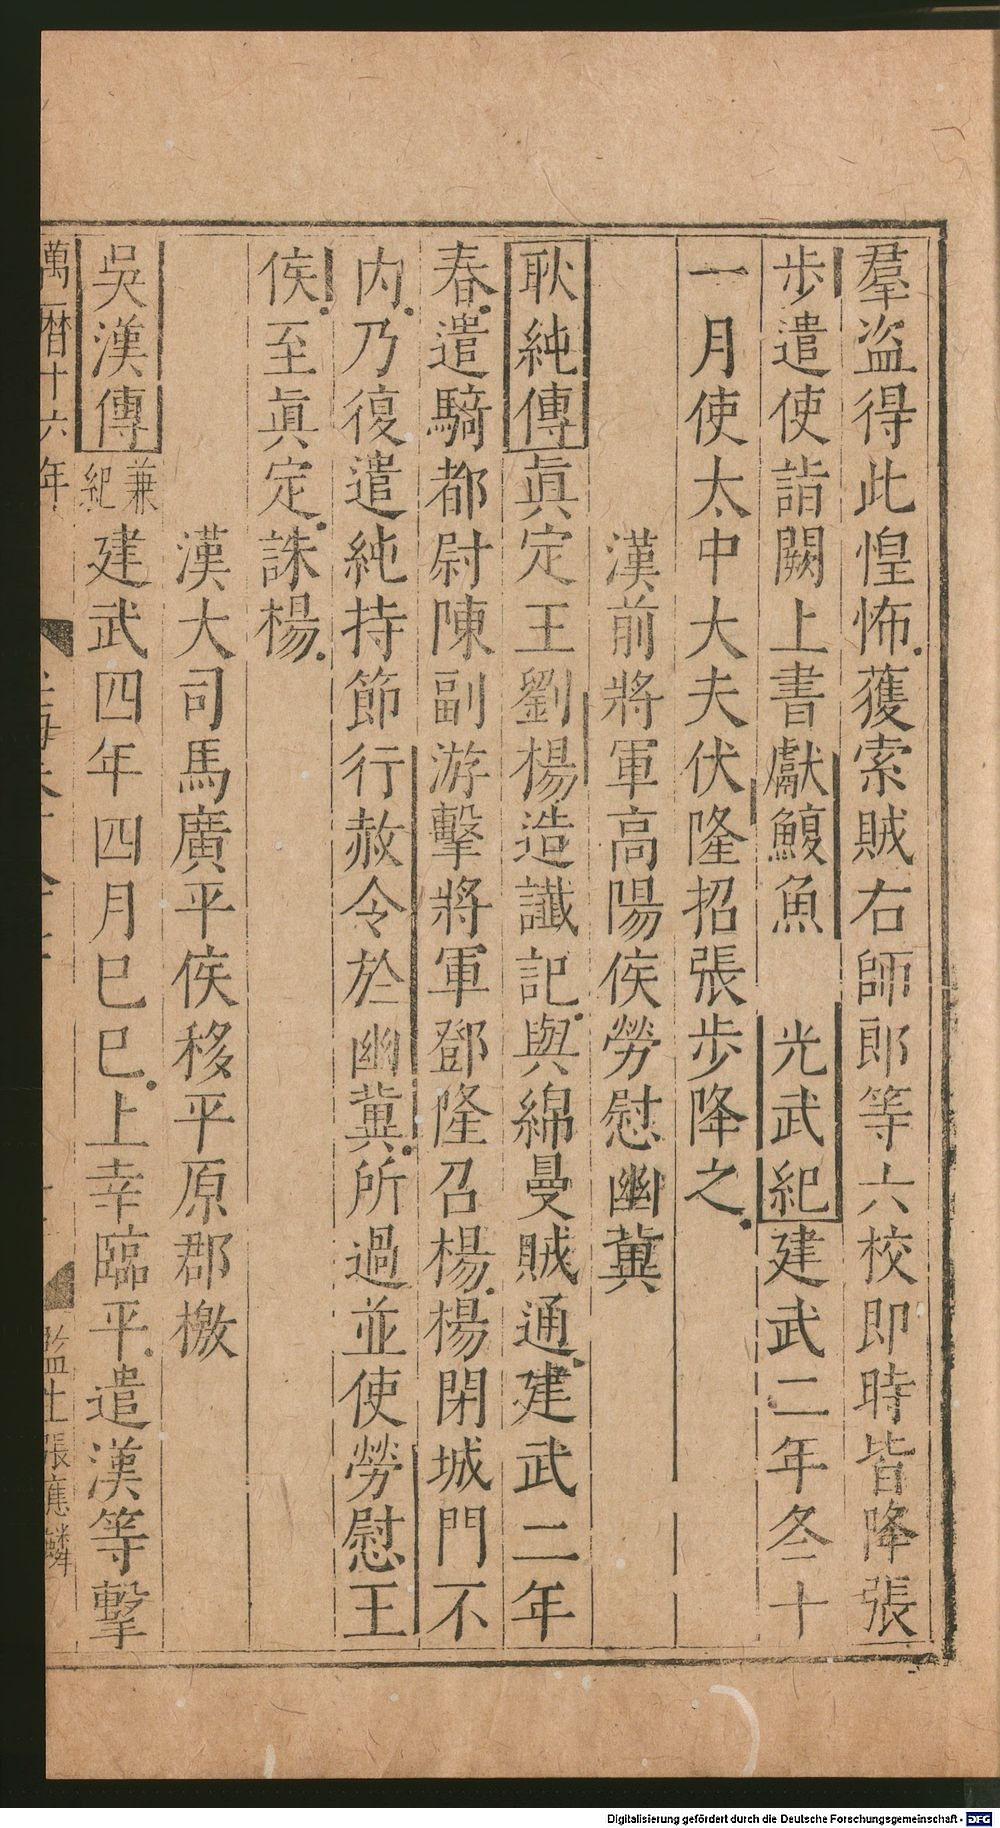 羣盜得此惶怖獲索賊右師郎等六校即時皆降張
步遣使詣闕上書獻鰒魚　光武紀建武二年冬十
一月使太中大夫伏隆招張步降之
漢前將軍高陽侯勞慰幽冀
耿純傳眞定王劉楊造讖記與綿曼賊通建武二年
春遣騎都尉陳副游擊將軍鄧隆召楊楊閉城門不
内乃復遣純持節行赦令於幽冀所過並使勞慰王
侯至眞定誅楊
漢大司馬廣平侯移平原郡檄
吳漢傳兼紀建武四年四月巳巳上幸臨平遣漢等擊
萬曆十六年
監生張應麟
Digitalisierung gefördert durch die Deutsche Forschungsgemeinschaft - DFG